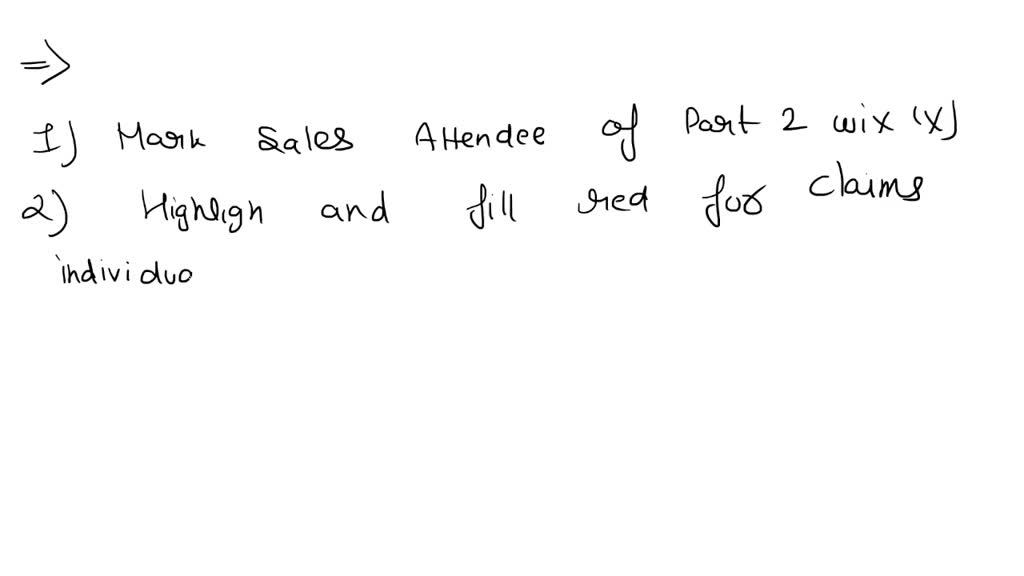 =>
1) Mark Sales Attendee of Part 2 wix (X)
2) Highlign and fill red for claims
individuo